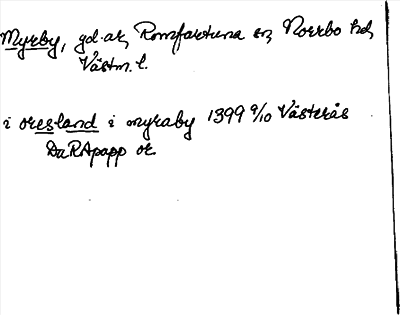 Myrby, gd. ar, Romfartuna sn, Norrbo hd,
Västm. l.
i oresland i myraby 1399 9/10 Västerås
DaRApapp or.